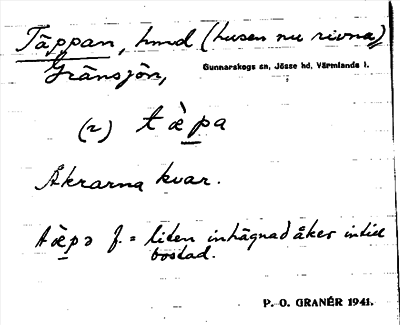 Täppan, hmd (husen nu rivna)
Gränsjön,
Gunnarskogs sn, Jösse hd, Värmlands l.
(2) tæ̀pa
Åkrarna kvar.
tæ̀pə f. = liten inhägnad åker intill
bostad.
P. O. GRANÉR 1941.